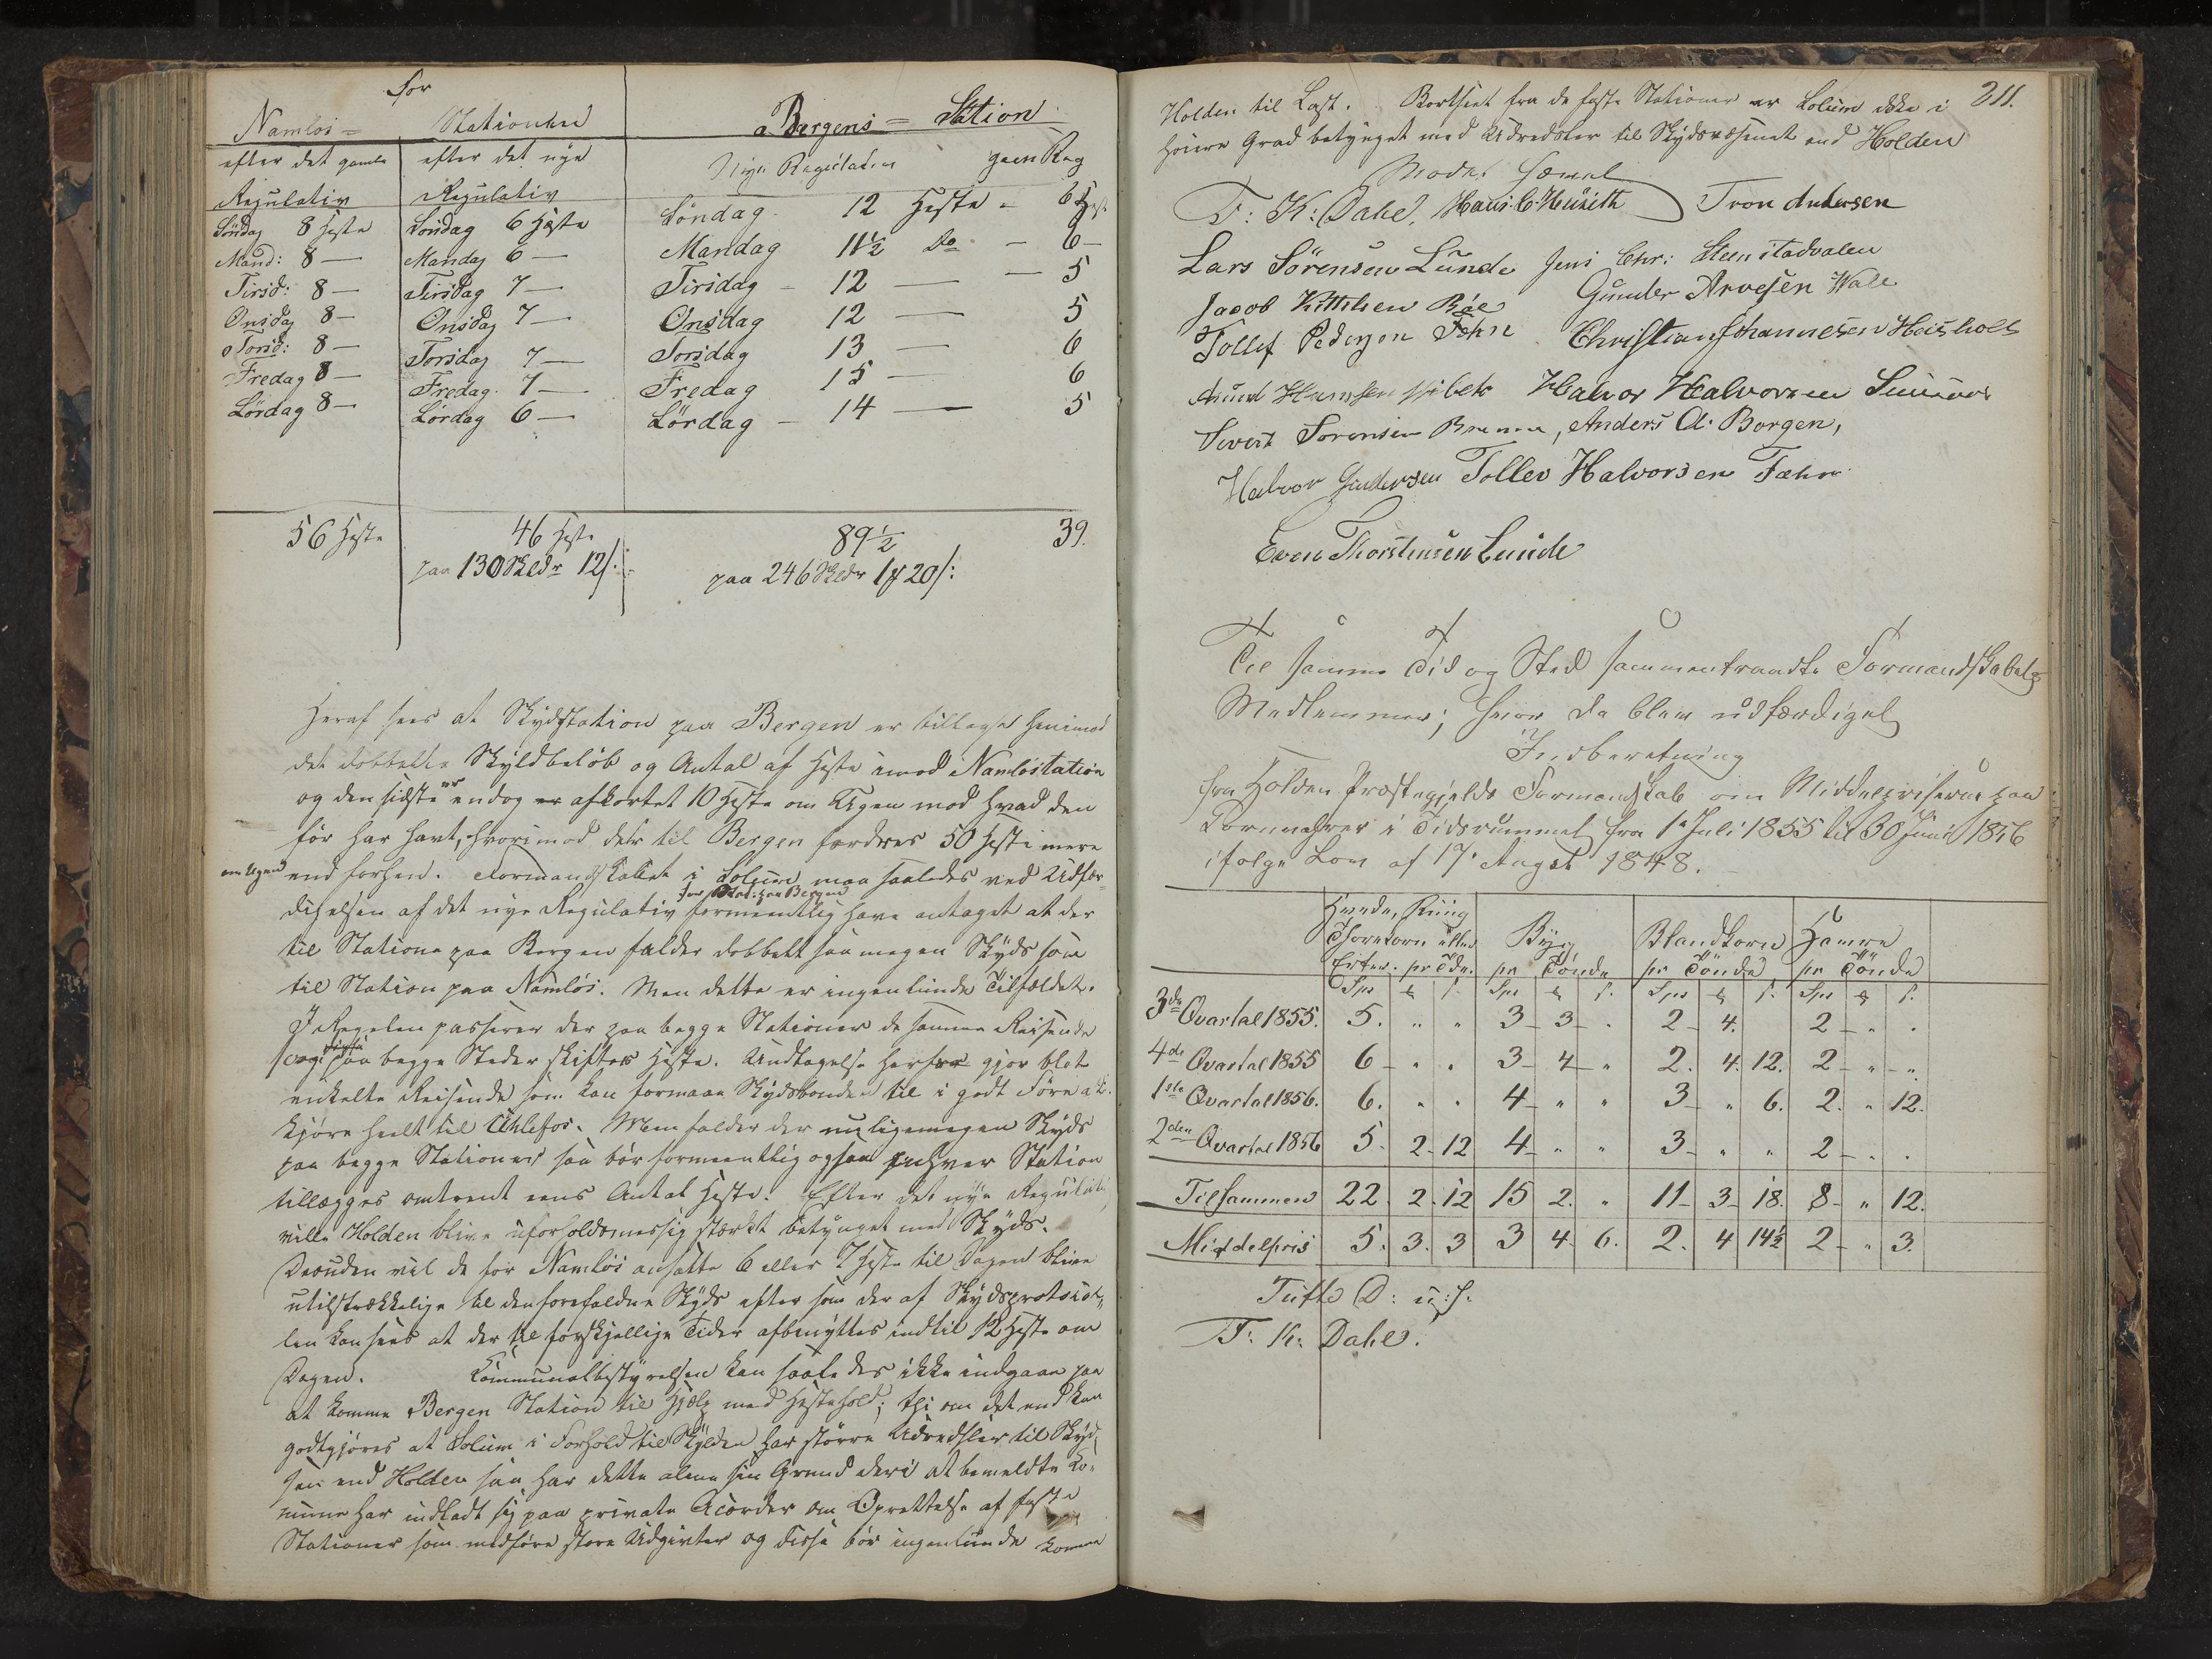 for
Namlos = Stationen
efter det gamle efter det nye
Regulativ Regulativ
Söndag 8 Heste Söndag 6 Heste
Mand: 8 — Mandag 6 —
Tirsd: 8 — Tirsdag 7 —
Onsdag 8 — Onsdag 7 —
Torsd: 8 — Torsdag 7 —
Fredag 8 — Fredag 7 —
Lördag 8 — Lördag 6 —
56 Heste 46 Heste
paa 130 Skldr 12 s:
Bergens = Station
Nye Regulativ gam Reg
Söndag 12 Heste - 6 Hest
Mandag 11½ Do - 6 -
Tirsdag - 12 — - 5
Onsdag 12 — 5
Torsdag 13 — 6
Fredag 15 — 6
Lördag - 14 — 5
89½ 39.
paa 246 Skldr 1 ₰ 20 s:
Heraf sees at Skydsstation paa Bergen er tillagt henimod
det dobbelte Skyldbelöb og Antal af Heste imod Namlosstation
og den sidste er endog er afkortet 10 Heste om Ugen mod hvad den
för har havt, hvorimod der til Bergen fordres 50 Heste mere
om Ugen end forhen. Formandskabet i Solum maa saaledes ved Udfær-
digelsen af det nye Regulativ for Stat: paa Bergen formentlig have antaget at der
til Station paa Bergen falder dobbelt saa megen Skyds som
til Station paa Namlös. Men dette er ingenlunde Tilfældet.
I Regelen passerer der paa begge Stationer de samme Reisende
og paa begge Steder skiftes Heste. Undtagelse herfra gjør blot
enkelte Reisende som kan formaae Skydsbonden til i godt Före at
kjöre heelt til Uhlefos. Men falder der nu ligemegen Skyds
paa begge Stationer saa bör formeentlig ogsaa enhver Station
tillægges omtrent eens Antal Heste. Efter det nye Regulativ
ville Holden blive uforholdsmessig stærkt betynget med Skyds.
Desuden vil de for Namlös ansatte 6 eller 7 Heste til Dagen blive
utilstrækkelige til den forefaldne Skyds efter som der af Skydsprotocol-
len kan sees at der til forskjellige Tider afbenyttes indtil 12 Heste om
Dagen. Communalbestyrelsen kan saaledes ikke indgaae paa
at komme Bergen Station til Hjælp med Hestehold; thi om det end kan
godtgjöres at Solum i Forhold til Skylden har större Udredsler til Skyd-
sen end Holden saa har dette alene sin Grund deri at bemeldte Co-
mune har indladt sig paa private Acorder om Oprettelse af faste
Stationer som medföre store Udgivter og disse bör ingenlunde komme
211.
Holden til Last. Bortseet fra de faste Stationer er Solum ikke i
höiere Grad betynget med Udredsler til Skydsvæsenet end Holden
Mödet hævet
T: K: Dahl, Hans C. Tron Andersen
Lars Sörensen Lunde Jens Chr: Steenstadvalen
Jacob Kittilsen Böe Gunder Arvesen Wale
Tollef Pedersen Fæhn Christian Johannesen Heisholt
Halvor Halvorsen
Sivert Sorensen , Anders A. Borgen,
Halvor Gundersen Tollev Halvorsen Fæhn
Even Thorstensen Lunde
Til samme Tid og Sted sammentraadte Formandskabets
Medlemmer; hvor da blev udfærdiget
Indberetning
fra Holden Præstegjelds Formandskab om Middelpriserne paa
Kornvahrer i Tidsrummet fra 1 Juli 1855 til 30 Juni 1856
ifølge Lov af 17 August 1848.
Hvede, Ruug
Thorekorn eller Byg Blandkorn Havre
Erter. pr Tde. pr Tönde pr Tönde pr Tönde
Spd ₰ s. Spd ₰ s. Spd ₰ s. Spd ₰ s.
3de Qvartal 1855. 5. " " 3 - 3 - . 2 - 4. 2 - " .
4de Qvartal 1855 6 - " " 3 - 4 - " 2. 4. 12. 2 - " - ".
1ste Qvartal 1856. 6. " " 4 - " " 3 - " 6. 2. " 12.
2den Qvartal 1856 5. 2. 12 4 - " " 3 - " " 2 - . .
Tilsammen 22. 2. 12 15 2. " 11 - 3 - 18. 8 - " 12.
Middelpris 5. 3. 3 3 4. 6. 2. 4 14½ 2 - " 3.
Tufte D: u: s.
T: K: Dahl.